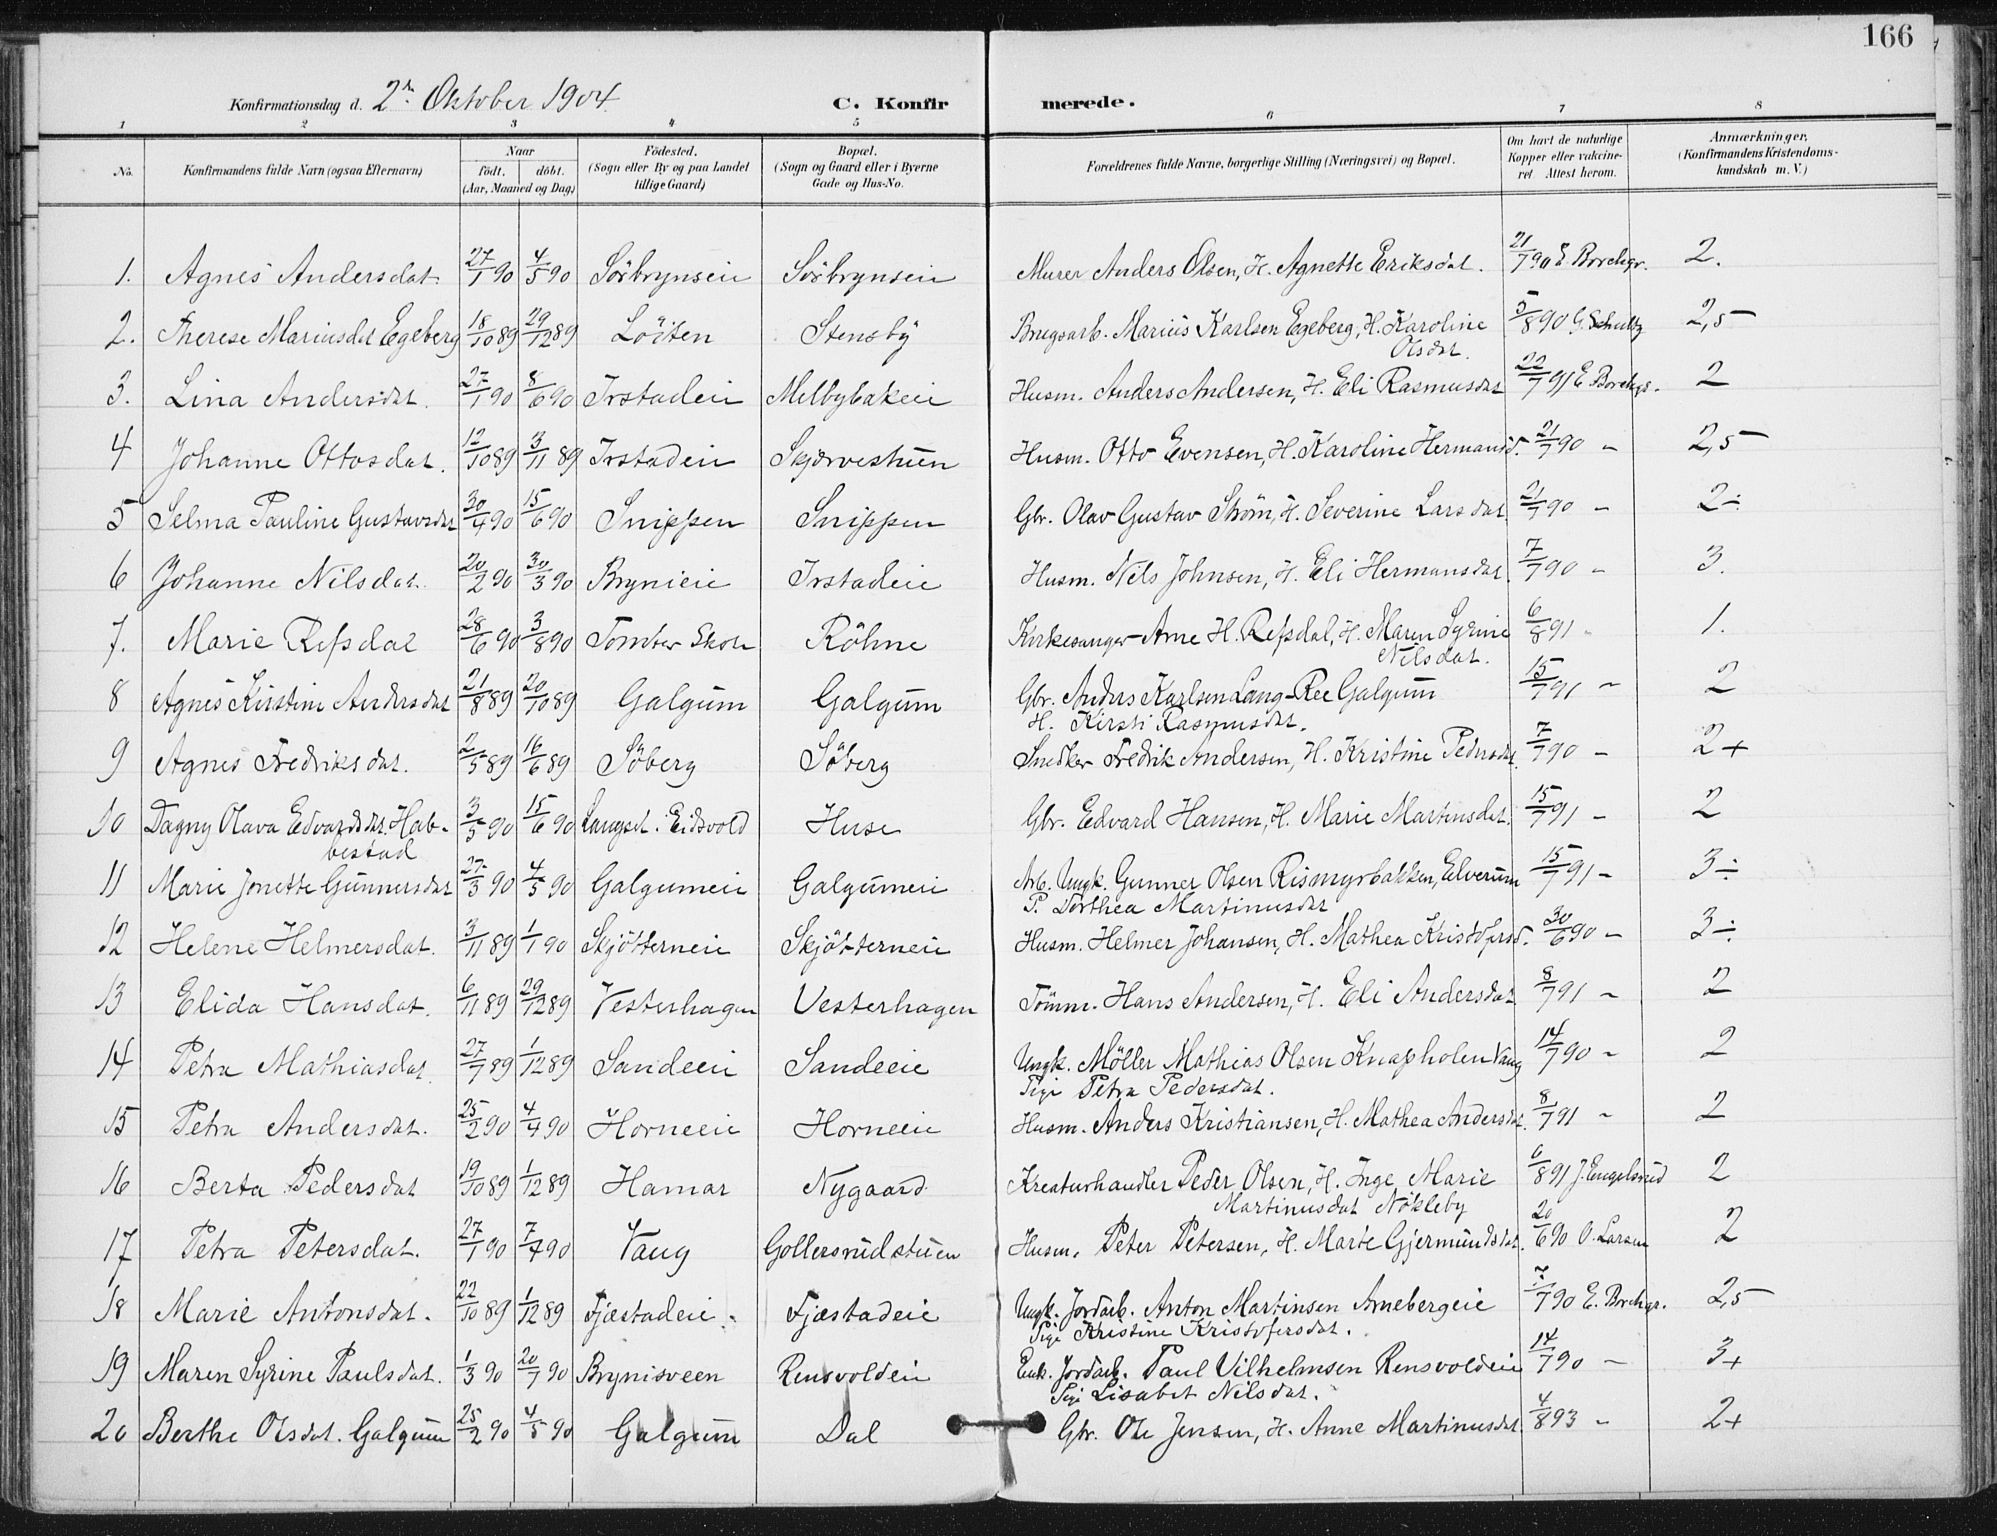 166
Konfirmationsdag d. 2den Oktober 1904. C. Konfirmerede.
1 2 3 4 5 6 7 8
No. Konfirmandens fulde Navn (ogsaa Efternavn) Naar födt. döbt. (Aar, Maaned og Dag) Födested. (Sogn eller By og paa Landet tillige Gaard) Bopæl. (Sogn og Gaard eller i Byerne Gade og Hus-No. Forældrenes fulde Navne, borgerlige Stilling (Næringsvei) og Bopæl. Om havt de naturlige Kopper eller vakcineret Attest herom. Anmærkninger. (Konfirmandens Kristendomskundskab m. V.)
1. Agnes Andersdat. 27/1 90 4/5 90 Sörbrynseie Sörbrynseie Murer Anders Olsen, H. Agnette Eriksdat. 21/7 90 E. Borchgr. 2.
2. Therese Mariusdat Egeberg 18/10 89 29/12 89 Löiten Stensby Brugsarb. Marius Karlsen Egeberg, H. Karoline 5/8 90 G. Schultz 2,5
Olsdat.
3. Lina Andersdat. 27/1 90 8/6 90 Irstadeie Melbybakeie Husm. Anders Andersen, H. Eli Rasmusdat 22/7 91 E. Borchgr. 2
4 Johanne Ottosdat. 12/10 89 3/11 89 Irstadeie Skjærvestuen Husm. Otto Evensen, H. Karoline Hermansd. 21/7 90 - 2,5
5 Selma Pauline Gustavsdat 30/4 90 15/6 90 Snippen Snippen Gbr. Olav Gustav Strøm, H. Severine Larsdat. 21/7 90 - 2÷
6 Johanne Nilsdat. 20/2 90 30/3 90 Brynieie Irstadeie Husm. Nils Johnsen, H. Eli Hermansdat. 7/7 90 - 3.
7. Marie Refsdal 28/6 90 3/8 90 Tomter Skole Röhne Kirkesanger Arne H. Refsdal, H. Maren Syrine 6/8 91 - 1.
Nilsdat.
8 Agnes Kirstine Andersdat 21/8 89 20/10 89 Galgum Galgum Gbr. Anders Karlsen Lang-Ree Galgum 15/7 91 - 2
H. Kirsti Rasmusdat.
9 Agnes Fredriksdat. 2/5 89 16/6 89 Söberg Söberg Snedker Fredrik Andersen, H. Kristine Pedersdat. 7/7 90 - 2+
10 Dagny Olava Edvardsdat. Hab- 3/5 90 15/6 90 Langset. Eidsvold Huse Gbr. Edvard Hansen, H. Marie Martinsdat. 15/7 91 - 2
bestad
11 Marie Jonette Gunnersdat 27/3 90 4/5 90 Galgumeie Galgumeie Arb. Ungk. Gunner Olsen Rismyrbakken, Elverum 15/7 91 - 3÷
P. Dorthea Martinusdat
12 Helene Helmersdat. 3/11 89 1/1 90 Skjötterneie Skjötterneie Husm. Helmer Johansen, H. Mathea Kristofersd. 30/6 90 - 3÷
13 Elida Hansdat. 6/11 89 29/12 89 Vesterhagen Vesterhagen Tömm. Hans Andersen, H. Eli Andersdat 8/7 91 - 2
14 Petra Mathiasdat. 27/7 89 1/12 89 Sandeeie Sandeeie Ungk. Möller Mathias Olsen Knapholen Vang 14/7 90 - 2
Pige Petra Pedersdat.
15 Petra Andersdat. 25/2 90 4/4 90 Horneeie Horneeie Husm. Anders Kristiansen, H. Mathea Andersdat. 8/7 91 - 2
16 Berta Pedersdat 19/10 89 1/12 89 Hamar Nygaard Kreaturhandler Peder Olsen, H. Inge Marie 6/8 91 J. Engelsrud 2
Martinusdat Nökleby
17 Petra Petersdat. 27/1 90 7/4 90 Vang Gollersrudstuen Husm. Peter Petersen, H. Marte Gjermundsdat. 20/6 90 O. Larsen 2
18 Marie Antonsdat. 22/10 89 1/12 89 Fjæstadeie. Fjæstadeie Ungk. Jordarb. Anton Martinsen Arnebergeie 7/7 90 E. Borchgr. 2,5
Pige Kristine Kristofersdat.
19 Maren Syrine Paulsdat. 1/3 90 20/7 90 Brynisveen Rensvoldeie Enk. Jordarb. Paul Vilhelmsen Rensvoldeie 14/7 90 - 3+
Pige Lisabet Nilsdat.
20 Berthe Olsdat. Galgum 25/2 90 4/5 90 Galgum Dal Gbr. Ole Jensen, H. Anne Martinusdat 4/8 93 - 2+